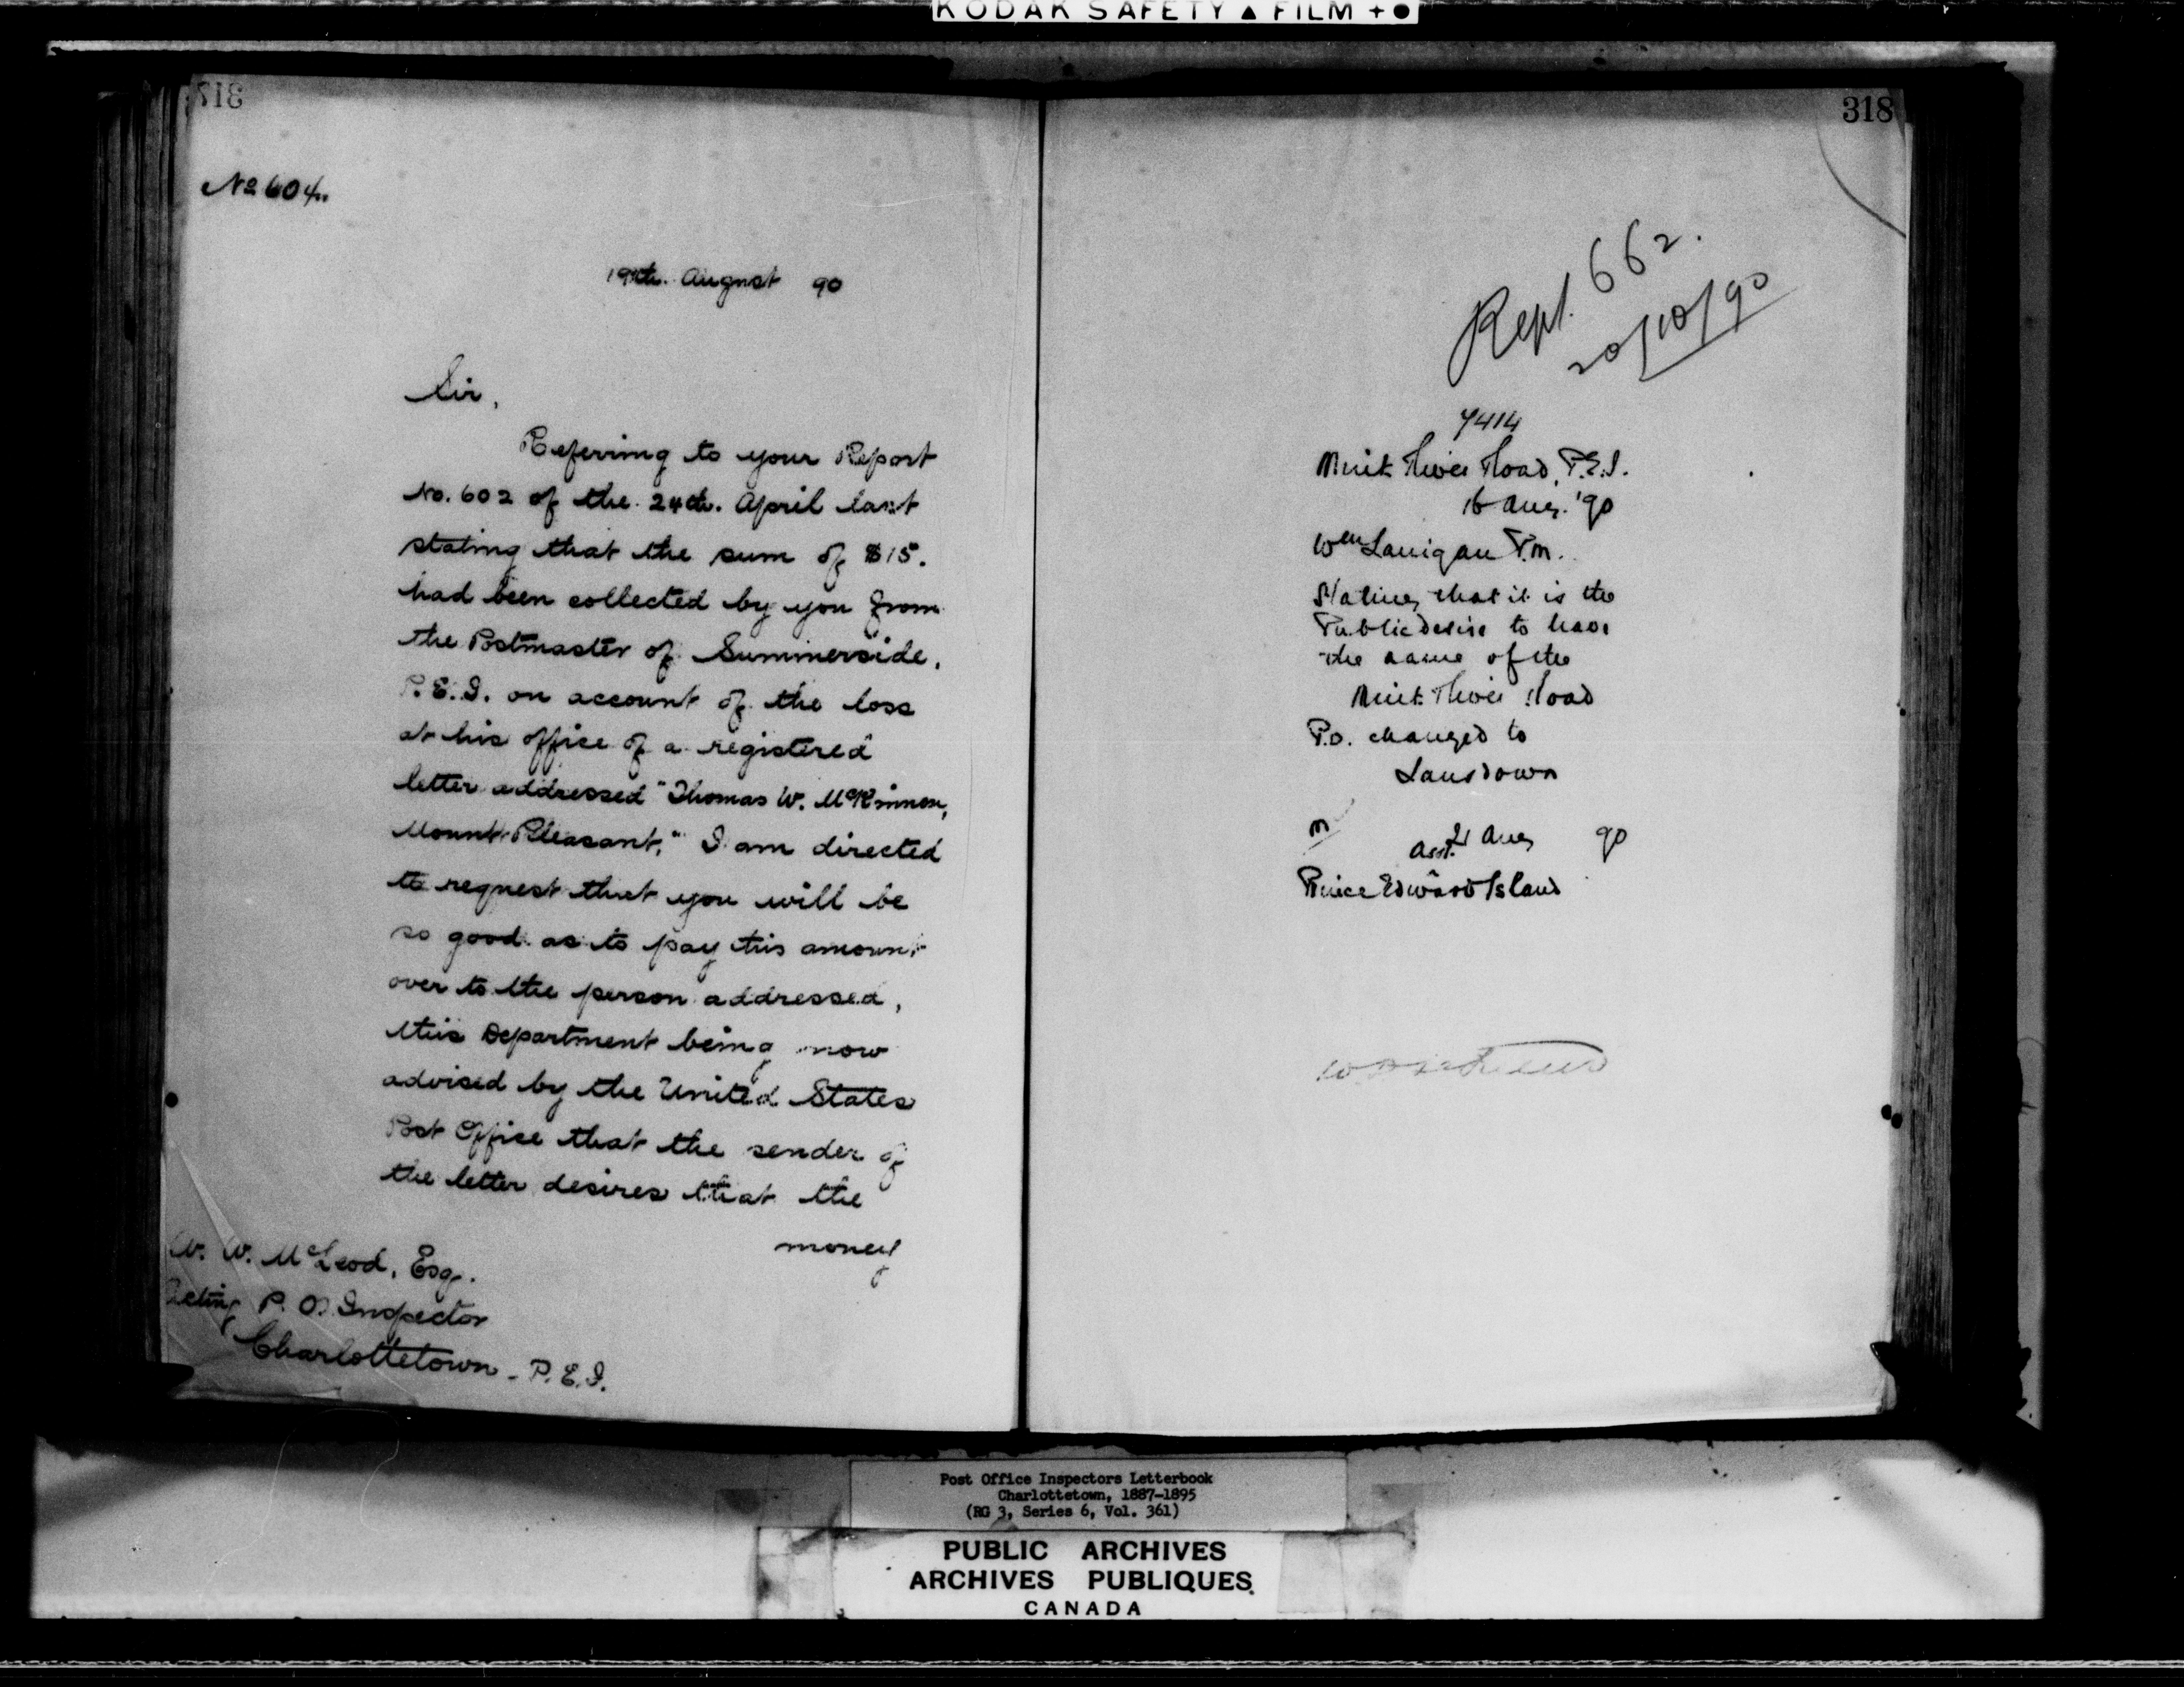 KODAK SAFETY ▲ FILM + ●
317
No 604.
19th. August 90
Sir,
Referring to your Report
No. 602 of the 24th. April last
stating that the sum of $15.
had been collected by you from
the Postmaster of Summerside,
P.E.I. on account of the loss
at his office of a registered
letter addressed "Thomas W. McKinnon,
Mount Pleasant," I am directed
to request that you will be
so good as to pay this amount
over to the person addressed,
this Department being now
advised by the United States
Post Office that the sender of
the letter desires that the
money
W. W. McLeod, Esq.
Acting P. O. Inspector
Charlottetown - P.E.I.
318
Rept. 662.
20/10/90
7414
River Road, P.E.I.
16 Aug. '90
Wm Lanigan P.M.
Stating that it is the
Public desire to have
the name of the
River Road
P.O. changed to
Lansdown
M
21 Aug 90
Asst.
Prince Edward Island
Post Office Inspectors Letterbook
Charlottetown, 1887-1895
(RG 3, Series 6, Vol. 361)
PUBLIC ARCHIVES
ARCHIVES PUBLIQUES
CANADA